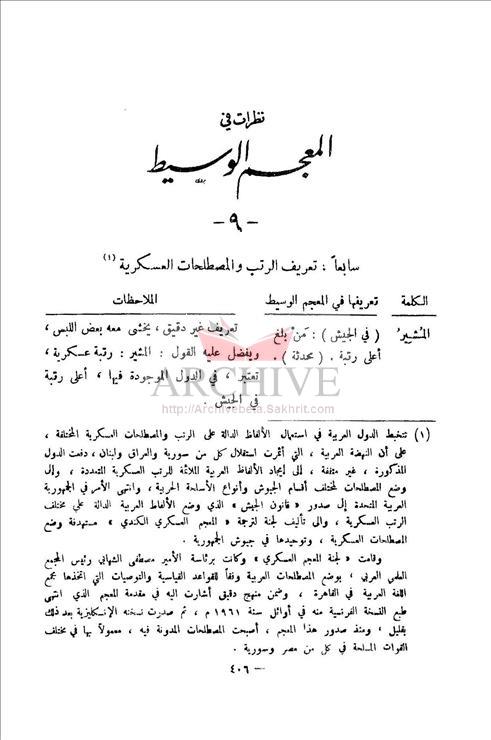 نظرات في
المعجم الوسيط
- ٩ -
سابعاً : تعريف الرتب والمصطلحات العسكرية (١)
الكلمة تعريفها في المعجم الوسيط الملاحظات
المُشِيرُ ( في الجيش ) : مَنْ بلغ تعريف غير دقيق ، يخشى معه بعض اللبس ،
أعلى رتبة . ( محدثة ) . ويفضل عليه القول : المشير : رتبة عسكرية ،
تعتبر ، في الدول الموجودة فيها ، أعلى رتبة
في الجيش .
ARCHIVE
http://Archivebeta.Sakhrit.com
(١) تتخبط الدول العربية في استعمال الألفاظ الدالة على الرتب والمصطلحات العسكرية المختلفة ،
على أن النهضة العربية ، التي أثمرت استقلال كل من سورية والعراق ولبنان ، دفعت الدول
المذكورة ، غير متفقة ، إلى إيجاد الألفاظ العربية الملائمة للرتب العسكرية المتعددة ، وإلى
وضع المصطلحات لمختلف أقسام الجيوش وأنواع الأسلحة الحربية ، وانتهى الأمر في الجمهورية
العربية المتحدة إلى صدور « قانون الجيش » الذي وضع الألفاظ العربية الدالة على مختلف
الرتب العسكرية ، والى تأليف لجنة لترجمة « المعجم العسكري الكندي » مستهدفة وضع
المصطلحات العسكرية ، وتوحيدها في جيوش الجمهورية .
وقامت « لجنة المعجم العسكري » وكانت برئاسة الأمير مصطفى الشهابي رئيس المجمع
العلمي العربي ، بوضع المصطلحات العربية وفقاً للقواعد القياسية والتوصيات التي اتخذها مجمع
اللغة العربية في القاهرة ، وضمن منهج دقيق أشارت اليه في مقدمة المعجم الذي انتهى
طبع النسخة الفرنسية منه في أوائل سنة ١٩٦١ م ، ثم صدرت نسخته الإنكليزية بعد ذلك
بقليل ، ومنذ صدور هذا المعجم ، أصبحت المصطلحات المدونة فيه ، معمولاً بها في مختلف
القوات المسلحة في كل من مصر وسورية .
— ٤٠٦